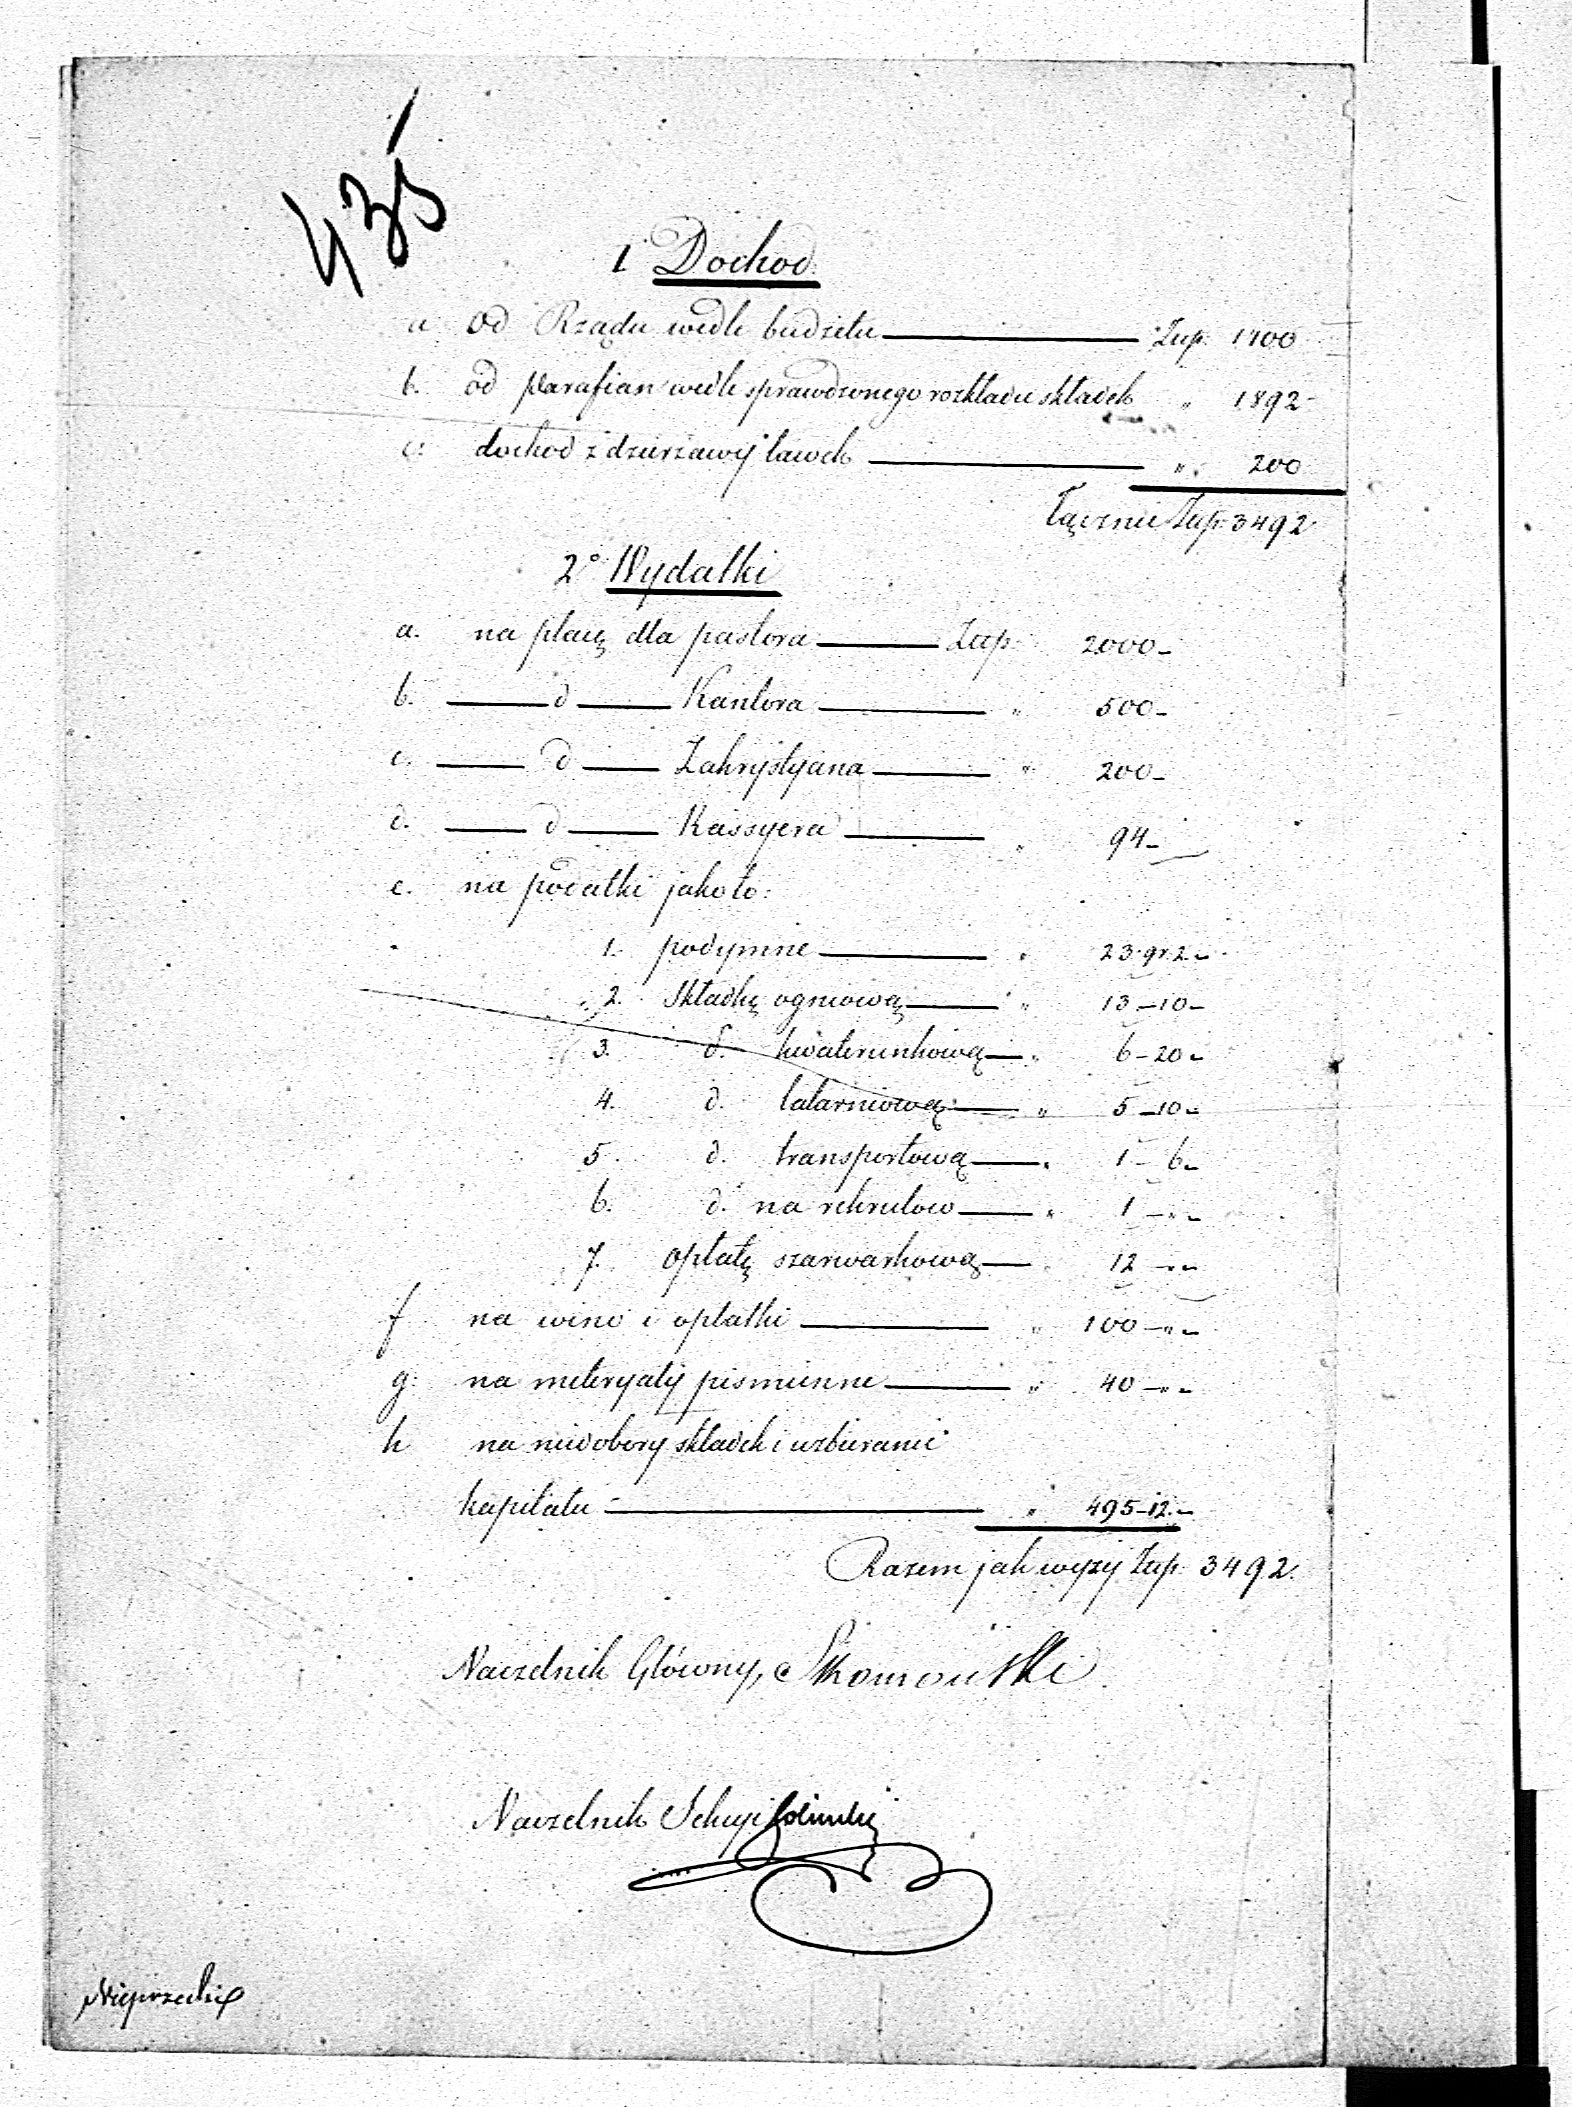 435
1 Dochod.
a od Rządu wedle budżetu Złp. 1400
b. od parafian wedle sprawdzonego rozkładu składek " 1892-
c. dochod z dzierżawy ławek " 200
Łącznie Złp. 3492
2° Wydatki
a. na płacę dla pastora Złp. 2000-
b. d Kantora " 500-
c. d Zakrystyana " 200-
d. d Kassyera " 94-
e. na podatki jakoto:
1. podymne " 23 gr. 2-
2. Składkę ogniową " 13-10-
3. d. kwaterunkową " 6-20-
4. d. latarniową " 5-10-
5. d. transportową " 1-6-
6. d. na rekrutow " 1-"-
7. opłatę szarwarkową " 12-"-
f na wino i opłatki " 100-"-
g. na materyały piśmienne " 40-"-
h na niedobory składek i uzbieranie
kapitału " 495-12.-
Razem jak wyżey Złp. 3492.
Naczelnik Główny,
Naczelnik Sekcyi